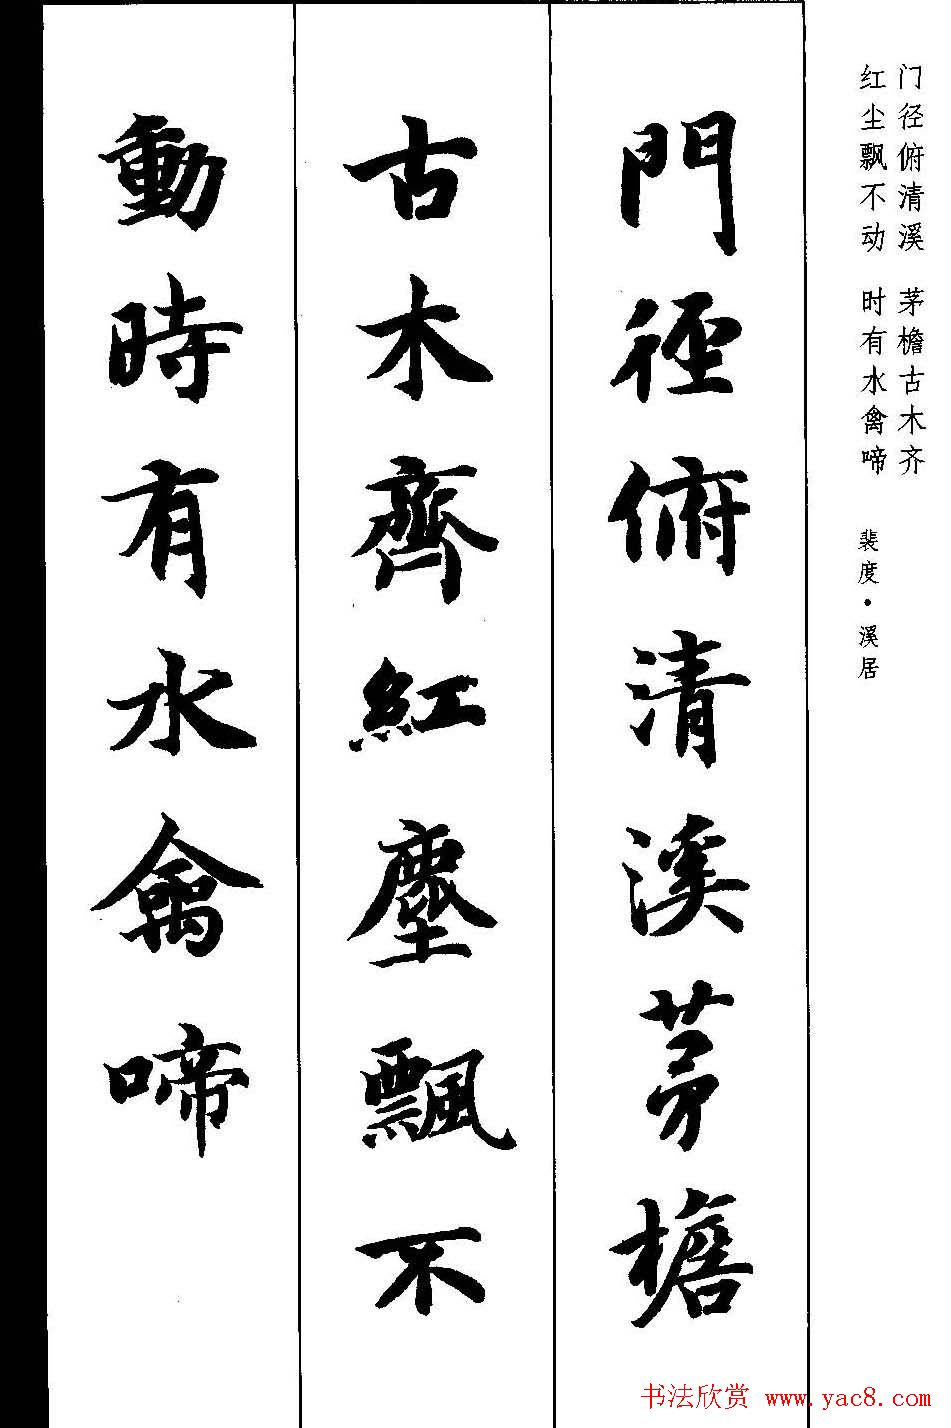 门径俯清溪 茅檐古木齐
红尘飘不动 时有水禽啼
裴度·溪居
門徑俯清溪茅檐
古木齊紅塵飄不
動時有水禽啼
书法欣赏 www.yac8.com